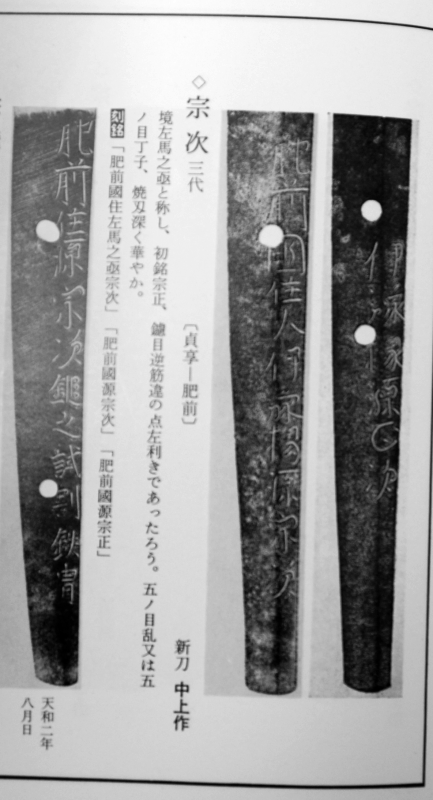 肥前國住人伊豫掾源宗次
◇宗次 三代 〔貞享―肥前〕 新刀 中上作
境左馬之亟と称し、初銘宗正、鑢目逆筋違の点左利きであったろう。五ノ目乱又は五
ノ目丁子、焼刃深く華やか。
刻銘「肥前國住左馬之亟宗次」「肥前國源宗次」「肥前國源宗正」
肥前住源宗次之試
天和二年
八月日